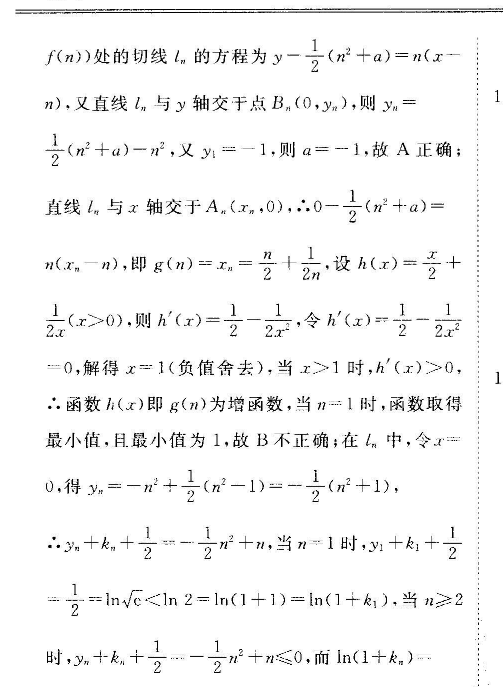 f(n))处的切线 lₙ 的方程为 y－1/2(n²＋a)＝n(x－
n),又直线 lₙ 与 y 轴交于点 Bₙ(0,yₙ),则 yₙ＝
1/2(n²＋a)－n²,又 y₁＝－1,则 a＝－1,故 A 正确;
直线 lₙ 与 x 轴交于 Aₙ(xₙ,0),∴0－1/2(n²＋a)＝
n(xₙ－n),即 g(n)＝xₙ＝n/2＋1/2n,设 h(x)＝x/2＋
1/2x(x>0),则 h′(x)＝1/2－1/2x²,令 h′(x)＝1/2－1/2x²
＝0,解得 x＝1(负值舍去),当 x>1 时,h′(x)>0,
∴函数 h(x)即 g(n)为增函数,当 n＝1 时,函数取得
最小值,且最小值为 1,故 B 不正确;在 lₙ 中,令x＝
0,得 yₙ＝－n²＋1/2(n²－1)＝－1/2(n²＋1),
∴yₙ＋kₙ＋1/2＝－1/2n²＋n,当 n＝1 时,y₁＋k₁＋1/2
＝1/2＝ln√e<ln 2＝ln(1＋1)＝ln(1＋k₁),当 n≥2
时,yₙ＋kₙ＋1/2＝－1/2n²＋n≤0,而 ln(1＋kₙ)＝
1
1